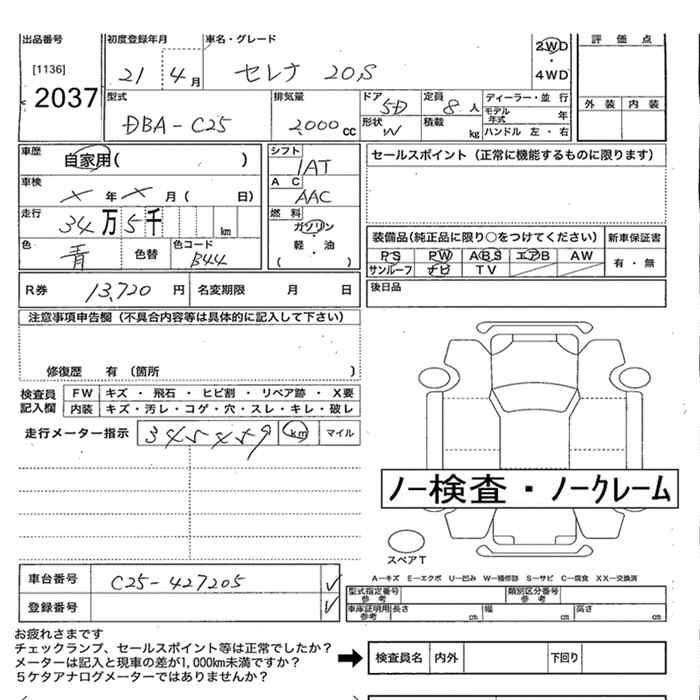 出品番号 初度登録年月 車名・グレード 2WD 評価点
[1136] 21 4月 セレナ 20S ・ 4WD
2037 型式 排気量 ドア 5D 定員 8人 ディーラー・並行 外装 内装
DBA-C25 2,000 cc 形状 W 積載 kg モデル年式 年
ハンドル 左・右
車歴 自家用( ) シフト 1AT セールスポイント(正常に機能するものに限ります)
車検 × 年 × 月( 日) AC AAC
走行 34万5千 km 燃料 ガソリン・軽・油 ( )
装備品(純正品に限り○をつけてください) 新車保証書
色 青 色替 色コード B44 PS PW ABS エアB AW 有・無
サンルーフ ナビ TV
R券 13,720 円 名変期限 月 日 後日品
注意事項申告欄(不具合内容等は具体的に記入して下さい)
修復歴 有(箇所 )
検査員記入欄 FW キズ・飛石・ヒビ割・リペア跡・X要
内装 キズ・汚レ・コゲ・穴・スレ・キレ・破レ
走行メーター指示 345459 km マイル
ノー検査・ノークレーム
スペアT
A-キズ E-エクボ U-凹み W-補修跡 S-サビ C-腐食 XX-交換済
車台番号 C25-427205 ✓ 型式指定番号 参考 類別区分番号 参考
登録番号 ✓ 車庫証明用 参考 長さ cm 幅 cm 高さ cm
お疲れさまです
チェックランプ、セールスポイント等は正常でしたか?
メーターは記入と現車の差が1,000km未満ですか? 検査員名 内外 下回り
5ケタアナログメーターではありませんか?